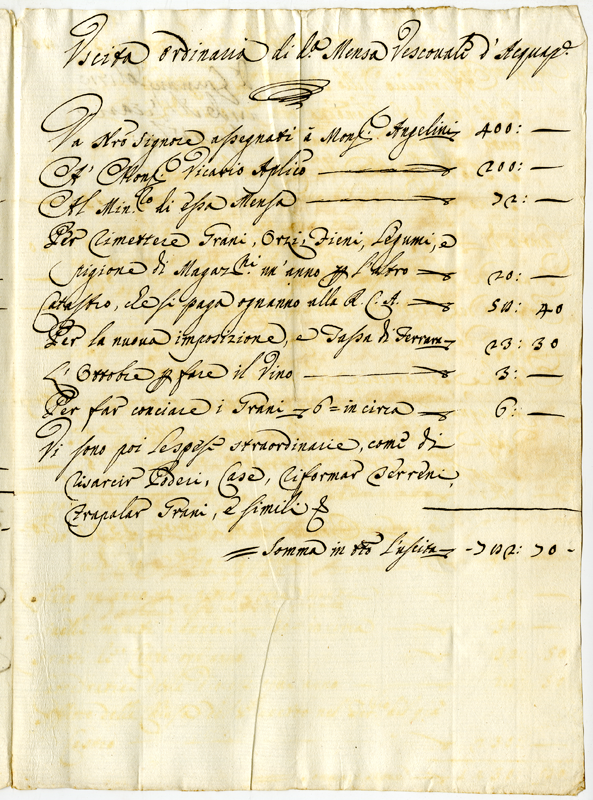 Uscita Ordinaria di d.ª Mensa Vescovale d'Acquap.
Da Nro Signore assegnati à Mons.r Angelini 400: —
A' Mons.r Vicario Aplico — 200: —
Al Min.ro di essa Mensa — 72: —
Per rimettere Grani, Orzi, Fieni, Legumi, e
pigione di Magaz.ni un'anno p l'altro — 20: —
Catastro, che si paga ogn'anno alla R. C. A. — 58: 40
Per la nuova imposizione, e Tassa di Ferrara — 23: 30
L' Ottobre p fare il Vino — 3: —
Per far conciare i Grani — 6 = in circa — 6: —
Vi sono poi l'espese straordinarie, come di
risarcir Poderi, Case, riformar Terreni,
trapalar Grani, e simili
Somma in tto l'uscita — 782: 70 -